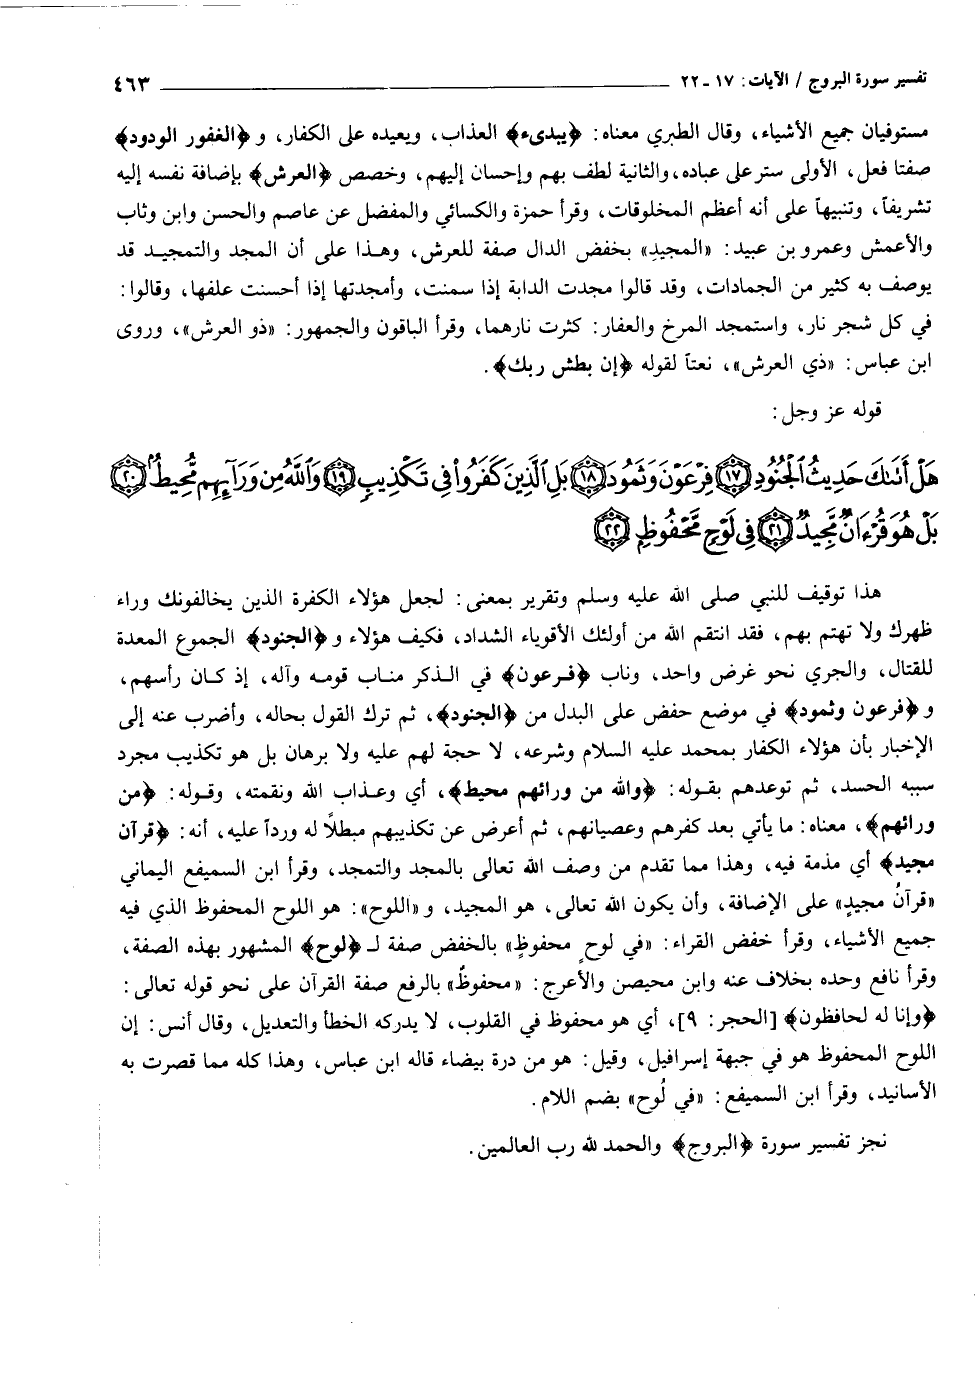 تفسير سورة البروج / الآيات: ١٧ - ٢٢ ٤٦٣
مستوفيان جميع الأشياء، وقال الطبري معناه: ﴿يبدىء﴾ العذاب، ويعيده على الكفار، و﴿الغفور الودود﴾
صفتا فعل، الأولى ستر على عباده، والثانية لطف بهم وإحسان إليهم، وخصص ﴿العرش﴾ بإضافة نفسه إليه
تشريفاً، وتنبيهاً على أنه أعظم المخلوقات، وقرأ حمزة والكسائي والمفضل عن عاصم والحسن وابن وثاب
والأعمش وعمرو بن عبيد: «المجيدِ» بخفض الدال صفة للعرش، وهذا على أن المجد والتمجيد قد
يوصف به كثير من الجمادات، وقد قالوا مجدت الدابة إذا سمنت، وأمجدتها إذا أحسنت علفها، وقالوا:
في كل شجر نار، واستمجد المرخ والعفار: كثرت نارهما، وقرأ الباقون والجمهور: «ذو العرش»، وروى
ابن عباس: «ذي العرش»، نعتاً لقوله ﴿إن بطش ربك﴾.
قوله عز وجل:
هَلْ أَتَىٰكَ حَدِيثُ ٱلْجُنُودِ ﴿١٧﴾ فِرْعَوْنَ وَثَمُودَ ﴿١٨﴾ بَلِ ٱلَّذِينَ كَفَرُواْ فِى تَكْذِيبٍ ﴿١٩﴾ وَٱللَّهُ مِن وَرَآئِهِم مُّحِيطٌۢ ﴿٢٠﴾
بَلْ هُوَ قُرْءَانٌ مَّجِيدٌ ﴿٢١﴾ فِى لَوْحٍ مَّحْفُوظٍ ﴿٢٢﴾
هذا توقيف للنبي صلى الله عليه وسلم وتقرير بمعنى: لجعل هؤلاء الكفرة الذين يخالفونك وراء
ظهرك ولا تهتم بهم، فقد انتقم الله من أولئك الأقوياء الشداد، فكيف هؤلاء و﴿الجنود﴾ الجموع المعدة
للقتال، والجري نحو غرض واحد، وناب ﴿فرعون﴾ في الذكر مناب قومه وآله، إذ كان رأسهم،
و﴿فرعون وثمود﴾ في موضع خفض على البدل من ﴿الجنود﴾، ثم ترك القول بحاله، وأضرب عنه إلى
الإخبار بأن هؤلاء الكفار بمحمد عليه السلام وشرعه، لا حجة لهم عليه ولا برهان بل هو تكذيب مجرد
سببه الحسد، ثم توعدهم بقوله: ﴿والله من ورائهم محيط﴾، أي وعذاب الله ونقمته، وقوله: ﴿من
ورائهم﴾، معناه: ما يأتي بعد كفرهم وعصيانهم، ثم أعرض عن تكذيبهم مبطلاً له ورداً عليه، أنه: ﴿قرآن
مجيد﴾ أي مذمة فيه، وهذا مما تقدم من وصف الله تعالى بالمجد والتمجد، وقرأ ابن السميفع اليماني
«قرآنُ مجيدٍ» على الإضافة، وأن يكون الله تعالى، هو المجيد، و«اللوح»: هو اللوح المحفوظ الذي فيه
جميع الأشياء، وقرأ خفض القراء: «في لوحٍ محفوظٍ» بالخفض صفة لـ ﴿لوح﴾ المشهور بهذه الصفة،
وقرأ نافع وحده بخلاف عنه وابن محيصن والأعرج: «محفوظٌ» بالرفع صفة القرآن على نحو قوله تعالى:
﴿وإنا له لحافظون﴾ [الحجر: ٩]، أي هو محفوظ في القلوب، لا يدركه الخطأ والتعديل، وقال أنس: إن
اللوح المحفوظ هو في جبهة إسرافيل، وقيل: هو من درة بيضاء قاله ابن عباس، وهذا كله مما قصرت به
الأسانيد، وقرأ ابن السميفع: «في لُوح» بضم اللام.
نجز تفسير سورة ﴿البروج﴾ والحمد لله رب العالمين.